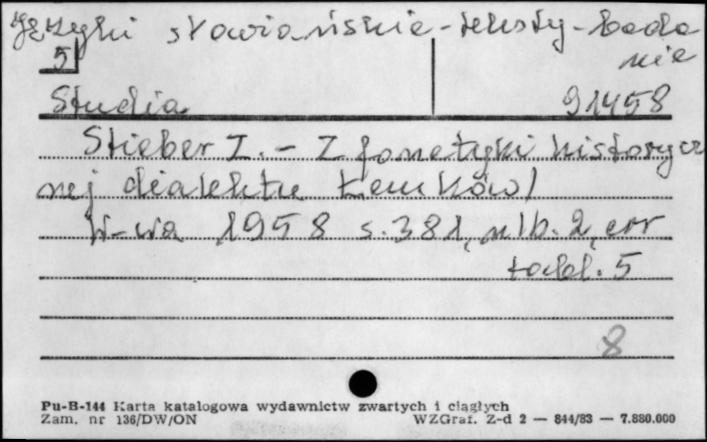 Języki słowiańskie - teksty - bada
nie
5
Studia 91458
Stieber Z. - Z fonetyki historycz
nej dialektu Łemków /
W-wa 1958 s. 381, nlb. 2, err
tabl. 5
8
Pu-B-144 Karta katalogowa wydawnictw zwartych i ciągłych
Zam. nr 136/DW/ON WZGraf. Z-d 2 — 844/83 — 7.880.000